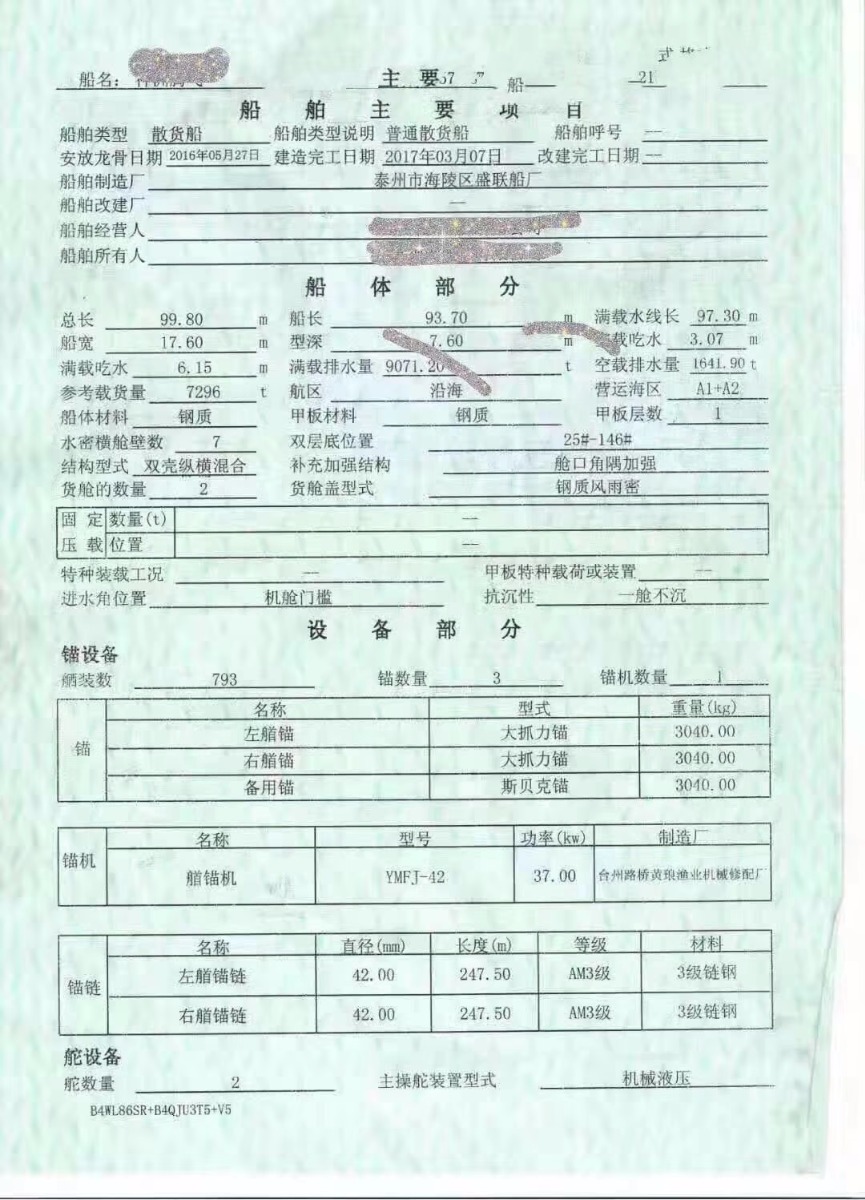 船名:
主要 船 21
船舶主要项目
船舶类型 散货船 船舶类型说明 普通散货船 船舶呼号 —
安放龙骨日期 2016年05月27日 建造完工日期 2017年03月07日 改建完工日期 —
船舶制造厂 泰州市海陵区盛联船厂
船舶改建厂 —
船舶经营人
船舶所有人
船体部分
总长 99.80 m 船长 93.70 m 满载水线长 97.30 m
船宽 17.60 m 型深 7.60 m 载吃水 3.07 m
满载吃水 6.15 m 满载排水量 9071.20 t 空载排水量 1641.90 t
参考载货量 7296 t 航区 沿海 营运海区 A1+A2
船体材料 钢质 甲板材料 钢质 甲板层数 1
水密横舱壁数 7 双层底位置 25#-146#
结构型式 双壳纵横混合 补充加强结构 舱口角隅加强
货舱的数量 2 货舱盖型式 钢质风雨密
固定 数量(t) —
压载 位置 —
特种装载工况 — 甲板特种载荷或装置 —
进水角位置 机舱门槛 抗沉性 一舱不沉
设备部分
锚设备
舾装数 793 锚数量 3 锚机数量 1
锚 名称 型式 重量(kg)
左艏锚 大抓力锚 3040.00
右艏锚 大抓力锚 3040.00
备用锚 斯贝克锚 3040.00
锚机 名称 型号 功率(kw) 制造厂
艏锚机 YMFJ-42 37.00 台州路桥黄琅渔业机械修配厂
锚链 名称 直径(mm) 长度(m) 等级 材料
左艏锚链 42.00 247.50 AM3级 3级链钢
右艏锚链 42.00 247.50 AM3级 3级链钢
舵设备
舵数量 2 主操舵装置型式 机械液压
B4WL86SR+B4QJU3T5+V5